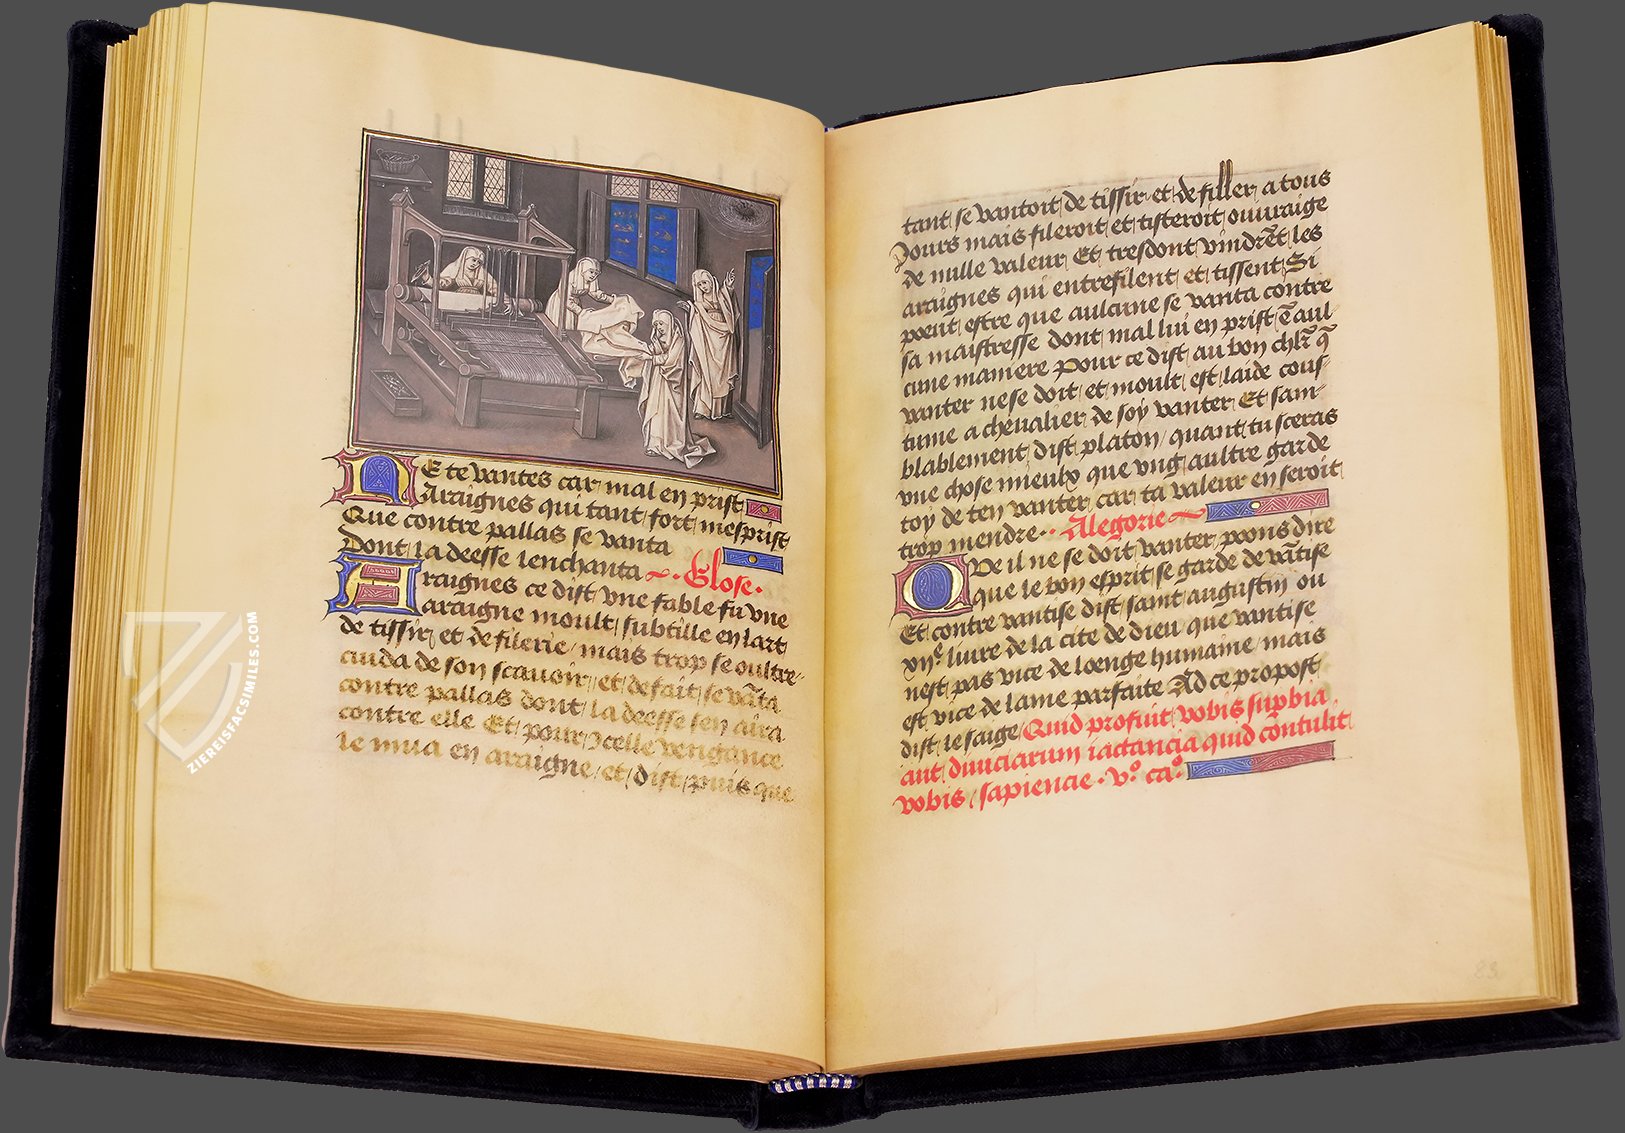 NE te vantes car mal en prist
Araignes qui tant fort mesprist
Que contre pallas se vanta
Dont la deesse lenchanta Glose.
Araignes ce dist vne fable fu vne
araigne moult subtille en lart
de tissir et de filerie mais trop se oultre
cuida de son scauoir et de fait se vāta
contre pallas dont la deesse sen aira
contre elle Et pour Icelle vengance
le mua en araigne et dist puis que
tant se vantoit de tissir et de filler a tous
Jours mais fileroit et tisteroit ouuraige
de nulle valeur Et tresdont vindrēt les
araignes qui entrefilent et tissent Si
poeut estre que aulcune se vanta contre
sa maistresse dont mal lui en prist ē aul
cune maniere Pour ce dist au bon chlr̄ q̄
vanter ne se doit et moult est laide cous
tume a cheualier de soy vanter Et sam
blablement dist platon quant tu sceras
vne chose mieulx que vng aultre garde
toy de ten vanter car ta valeur en seroit
trop mendre. Alegorie
QVe il ne se doit vanter poons dire
que le bon esprit se garde de vātise
Et contre vantise dist saint augustin ou
xijᵉ liure de la cite de dieu que vantise
nest pas vice de loenge humaine mais
est vice de lame parfaite Ad ce propost
dist le saige Quid profuit vobis supbia
aut diuiciarum iactancia quid contulit
vobis sapiencie. vº caº
83
ZIEREISFACSIMILES.COM